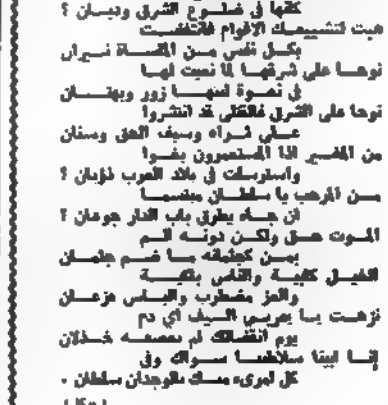 كفها في ضلوع الشرق وديان ؟
هبت لتشييعك الاقوام فانتفضت
بكل نفس من المأساة نيران
نوحا على شرقها لما نعيت لها
في نعوة لمها زور وبهتان
نوحا على الشرق فالقتلى قد انتشروا
على ثراه وسيف الحق وسنان
من المغير اذا المستعمرون بغوا
واسترسلت في بلاد العرب ذؤبان ؟
من المرهب يا سلطان مبتسما
ان جاء يطرق باب الدار جوعان ؟
الموت حق ولكن دونه الم
بمن كجثمانه ما ضم جثمان
الخيل كئيبة والناس باكية
والعز مضطرب والباس هزعان
نزهت يا عربي السيف اي دم
يوم انقضائك لم يعصمه خذلان
إنا ابينا سلاطينا سواك وفي
كل امرىء منك بالوجدان سلطان .